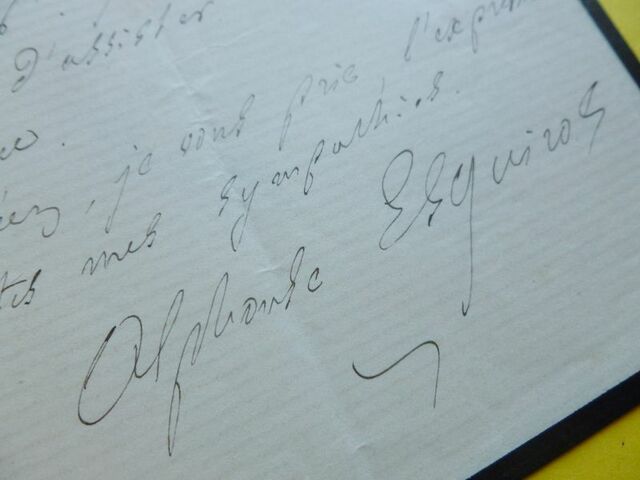 d'assister
je vous prie, l'expres
tes mes sympathies.
Alphonse Esquiros